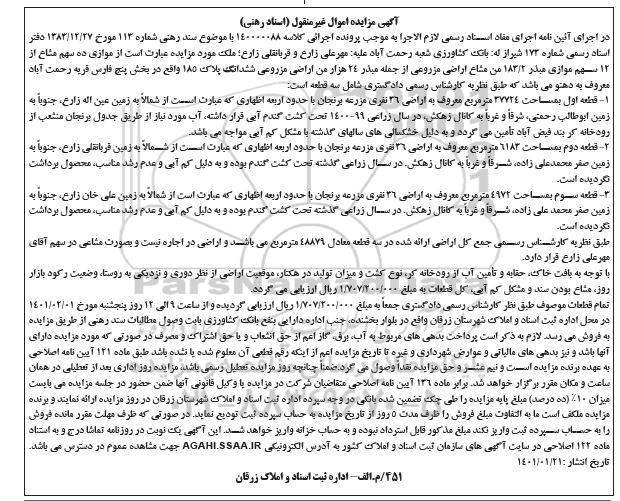 آگهی مزایده اموال غیرمنقول (اسناد رهنی)
در اجرای آئین نامه اجرای مفاد اسناد رسمی لازم الاجرا به موجب پرونده اجرائی کلاسه ۱۴۰۰۰۰۰۸۸ با موضوع سند رهنی شماره ۱۱۳ مورخ ۱۳۸۳/۱۲/۲۷ دفتر
اسناد رسمی شماره ۱۷۳ شیراز له: بانک کشاورزی شعبه رحمت آباد علیه: مهرعلی زارع و قربانقلی زارع؛ ملک مورد مزایده عبارت است از موازی ده سهم مشاع از
۱۲ سهم موازی میدر ۱۸۳/۲ من مشاع اراضی مزروعی از جمله میدر ۲۴ هزار من اراضی مزروعی ششدانگ پلاک ۱۸۵ واقع در بخش پنج فارس قریه رحمت آباد
معروف به دهنو می باشد که طبق نظریه کارشناس رسمی دادگستری شامل سه قطعه است:
۱- قطعه اول بمساحت ۳۷۷۲۴ مترمربع معروف به اراضی ۳۶ نفری مزرعه برنجان با حدود اربعه اظهاری که عبارت است از شمالاً به زمین عین اله زارع، جنوباً به
زمین ابوطالب رحمتی، شرقاً و غرباً به کانال زهکش. در سال زراعی ۹۹-۱۴۰۰ تحت کشت گندم آبی قرار داشته، آب مورد نیاز از طریق جدول برنجان منشعب از
رودخانه کر بند فیض آباد تأمین می گردد و به دلیل خشکسالی های سالهای گذشته با مشکل کم آبی مواجه می باشد.
۲- قطعه دوم بمساحت ۶۱۸۳ مترمربع معروف به اراضی ۳۶ نفری مزرعه برنجان با حدود اربعه اظهاری که عبارت است از شمالاً به زمین قربانقلی زارع، جنوباً به
زمین صفر محمدعلی زاده، شرقاً و غرباً به کانال زهکش. در سال زراعی گذشته تحت کشت گندم بوده و به دلیل کم آبی و عدم رشد مناسب، محصول برداشت
نگردیده است.
۳- قطعه سوم بمساحت ۴۹۷۲ مترمربع معروف به اراضی ۳۶ نفری مزرعه برنجان با حدود اربعه اظهاری که عبارت است از شمالاً به زمین علی خان زارع، جنوباً به
زمین صفر محمد علی زاده، شرقاً و غرباً به کانال زهکش. در سال زراعی گذشته تحت کشت گندم بوده و به دلیل کم آبی و عدم رشد مناسب، محصول برداشت
نگردیده است.
طبق نظریه کارشناس رسمی جمع کل اراضی ارائه شده در سه قطعه معادل ۴۸۸۷۹ مترمربع می باشد و اراضی در اجاره نیست و بصورت مشاعی در سهم آقای
مهرعلی زارع قرار دارد.
با توجه به بافت خاک، حقابه و تأمین آب از رودخانه کر، نوع کشت و میزان تولید در هکتار، موقعیت اراضی از نظر دوری و نزدیکی به روستا، وضعیت رکود بازار
روز، مشاع بودن سند و مشکل کم آبی، کل قطعات به مبلغ ۱/۷۰۷/۲۰۰/۰۰۰ ریال ارزیابی می گردد.
تمام قطعات موصوف طبق نظر کارشناس رسمی دادگستری جمعاً به مبلغ ۱/۷۰۷/۲۰۰/۰۰۰ ریال ارزیابی گردیده و از ساعت ۹ الی ۱۲ روز پنجشنبه مورخ ۱۴۰۱/۰۲/۰۱
در محل اداره ثبت اسناد و املاک شهرستان زرقان واقع در بلوار بخشنده، جنب اداره دارایی بنفع بانک کشاورزی بابت وصول مطالبات سند رهنی از طریق مزایده
به فروش می رسد. لازم به ذکر است پرداخت بدهی های مربوط به آب، برق، گاز اعم از حق انشعاب و یا حق اشتراک و مصرف در صورتی که مورد مزایده دارای
آنها باشد و نیز بدهی های مالیاتی و عوارض شهرداری و غیره تا تاریخ مزایده اعم از اینکه رقم قطعی آن معلوم شده یا نشده باشد طبق ماده ۱۲۱ آیین نامه اصلاحی
به عهده برنده مزایده است و نیم عشر و حق مزایده نقداً وصول می گردد ضمناً چنانچه روز مزایده تعطیل رسمی باشد، مزایده روز اداری بعد از تعطیلی در همان
ساعت و مکان مقرر برگزار خواهد شد. برابر ماده ۱۳۶ آیین نامه اصلاحی متقاضیان شرکت در مزایده یا وکیل قانونی آنها ضمن حضور در جلسه مزایده می بایست
میزان ۱۰٪ (ده درصد) مبلغ پایه مزایده را طی چک تضمین شده بانکی در وجه سپرده اداره ثبت اسناد و املاک شهرستان زرقان در روز مزایده ارائه نمایند و برنده
مزایده مکلف است ما به التفاوت مبلغ فروش را ظرف مدت ۵ روز از تاریخ مزایده به حساب سپرده ثبت تودیع نماید. در صورتی که ظرف مهلت مقرر مانده فروش
را به حساب سپرده ثبت واریز نکند مبلغ مذکور قابل استرداد نبوده و به حساب خزانه واریز خواهد شد. این آگهی یک نوبت در روزنامه تماشا درج و به استناد
ماده ۱۲۲ اصلاحی در سایت آگهی های سازمان ثبت اسناد و املاک کشور به آدرس الکترونیکی AGAHI.SSAA.IR جهت مشاهده عموم در دسترس می باشد.
تاریخ انتشار: ۱۴۰۱/۰۱/۲۱
۴۵۱/م.الف- اداره ثبت اسناد و املاک زرقان